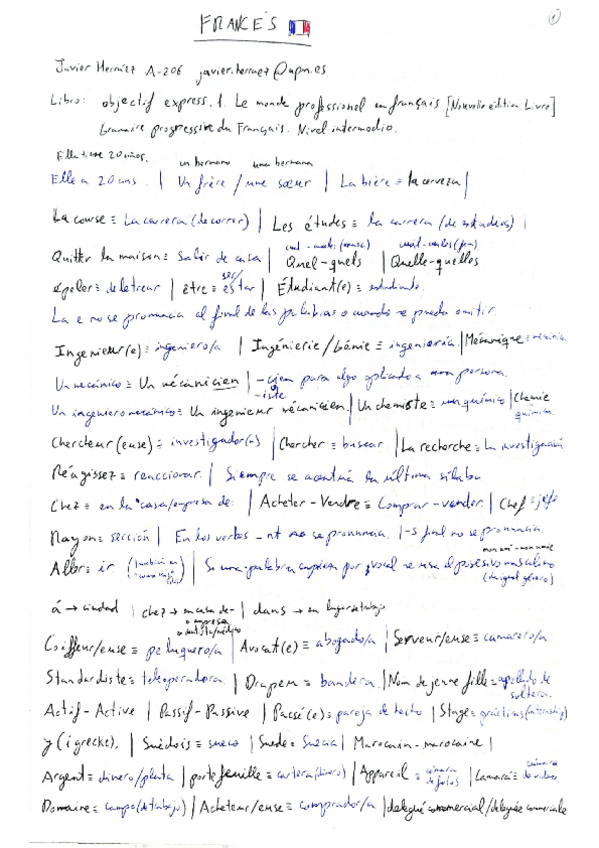 FRANCÉS
1
Javier Hernáez A-206 javier.hernaez@upn.es
Libro: objectif express. 1. Le monde professionel en français [Nouvelle édition. Livre]
Gramaire progressive du Français. Nivel intermedio.
Ella tiene 20 años. un hermano una hermana
Elle a 20 ans. | Un frère / une sœur | La bière = la cerveza |
La course = La carrera (de correr) | Les études = la carrera (de estudios) |
Quitter la maison = Salir de casa | Quel - quels | Quelle - quelles
épeler = deletrear | être = ser/estar | Étudiant(e) = estudiante.
La e no se pronuncia al final de las palabras o cuando se pueda omitir.
Ingenieur(e) = ingeniero/a | Ingénierie / Génie = ingeniería | Mécanique = mecánica
Un mecánico = Un mécanicien | -cien para algo aplicado a una persona.
-iste
Un ingeniero mecánico = Un ingenieur mécanicien. | Un chemiste = un químico | Chemie química
Chercheur (euse) = investigador(a) | Chercher = buscar | La recherche = La investigación
Réagissez = reaccionar. | Siempre se acentúa la última sílaba
Chez = en la casa/empresa de: | Acheter - Vendre = Comprar - vender. | Chef = jefe
Rayon = sección | En los verbos -nt no se pronuncia. | -s final no se pronuncia.
Aller = ir | Si una palabra empieza por vocal se usa el posesivo masculino (da igual género)
à → ciudad | chez → en casa de - | dans → en lugar de trabajo
o empresa
o dentista/médico
Coiffeur/euse = peluquero/a | Avocat(e) = abogado/a | Serveur/euse = camarero/a
Standardiste = teleoperadora. | Drapeu = bandera. | Nom de jeune fille = apellido de soltera.
Actif - Active | Passif - Passive | Pacsé(e) = pareja de hecho | Stage = prácticas (internship)
y (i grecke). | Suèdois = sueco | Suede = Suecia | Marocain - marocaine |
Argent = dinero/plata | portefeuille = cartera (dinero) | Appareil = cámara de fotos | Camará = cámara de vídeo
Domaine = campo (de trabajo) | Acheteur/euse = comprador/a | delegué commercial / delegée comerciale